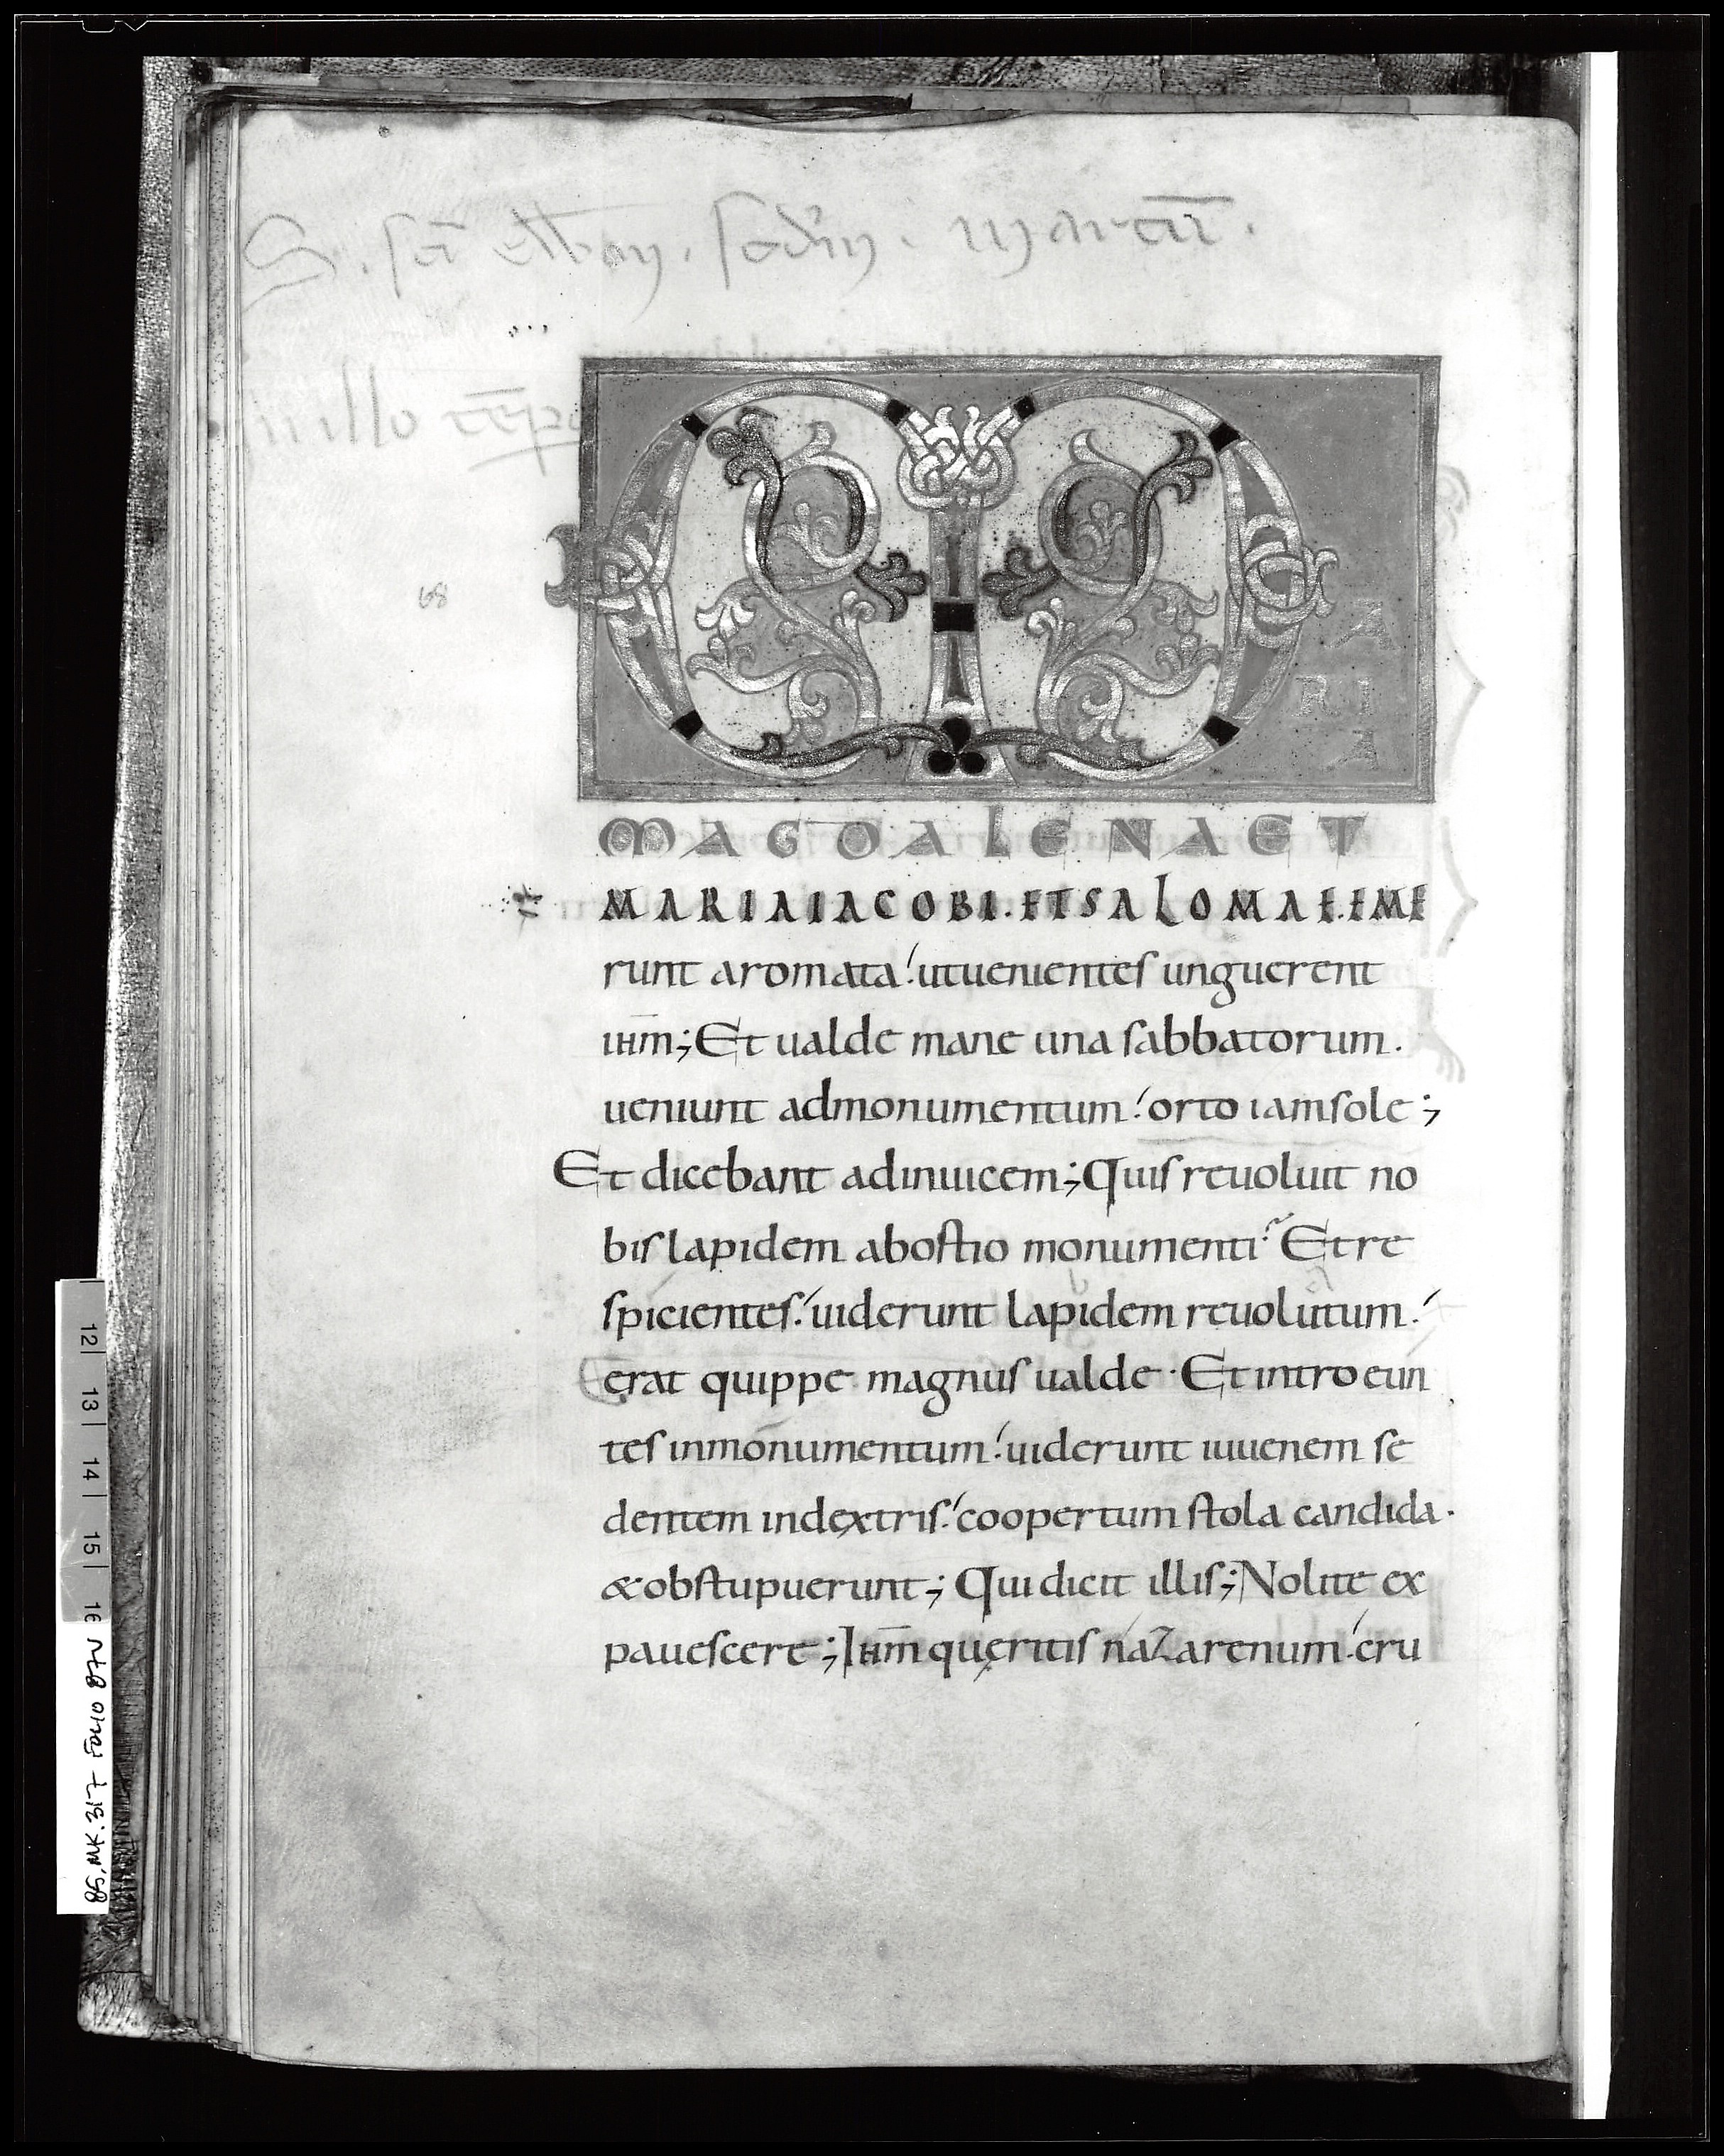 S. sc̄i
martiī.
in illo tēp
68
M
A
RI
A
MAGDALENAET
MARIAIACOBI.ETSALOMAE.EME
runt aromata! utuenientes unguerent
ihm̄; Et ualde mane una sabbatorum.
ueniunt admonumentum! orto iamsole;
Et dicebant adinuicem; Quis reuoluit no
bis lapidem abostio monumenti? Et re
spicientes! uiderunt lapidem reuolutum!
erat quippe magnus ualde· Et introeun
tes inmonumentum! uiderunt iuuenem se
dentem indextris! coopertum stola candida·
& obstupuerunt; Qui dicit illis; Nolite ex
pauescere; Ihm̄ queritis naZarenum! cru
12 13 14 15 16
85.MK.317